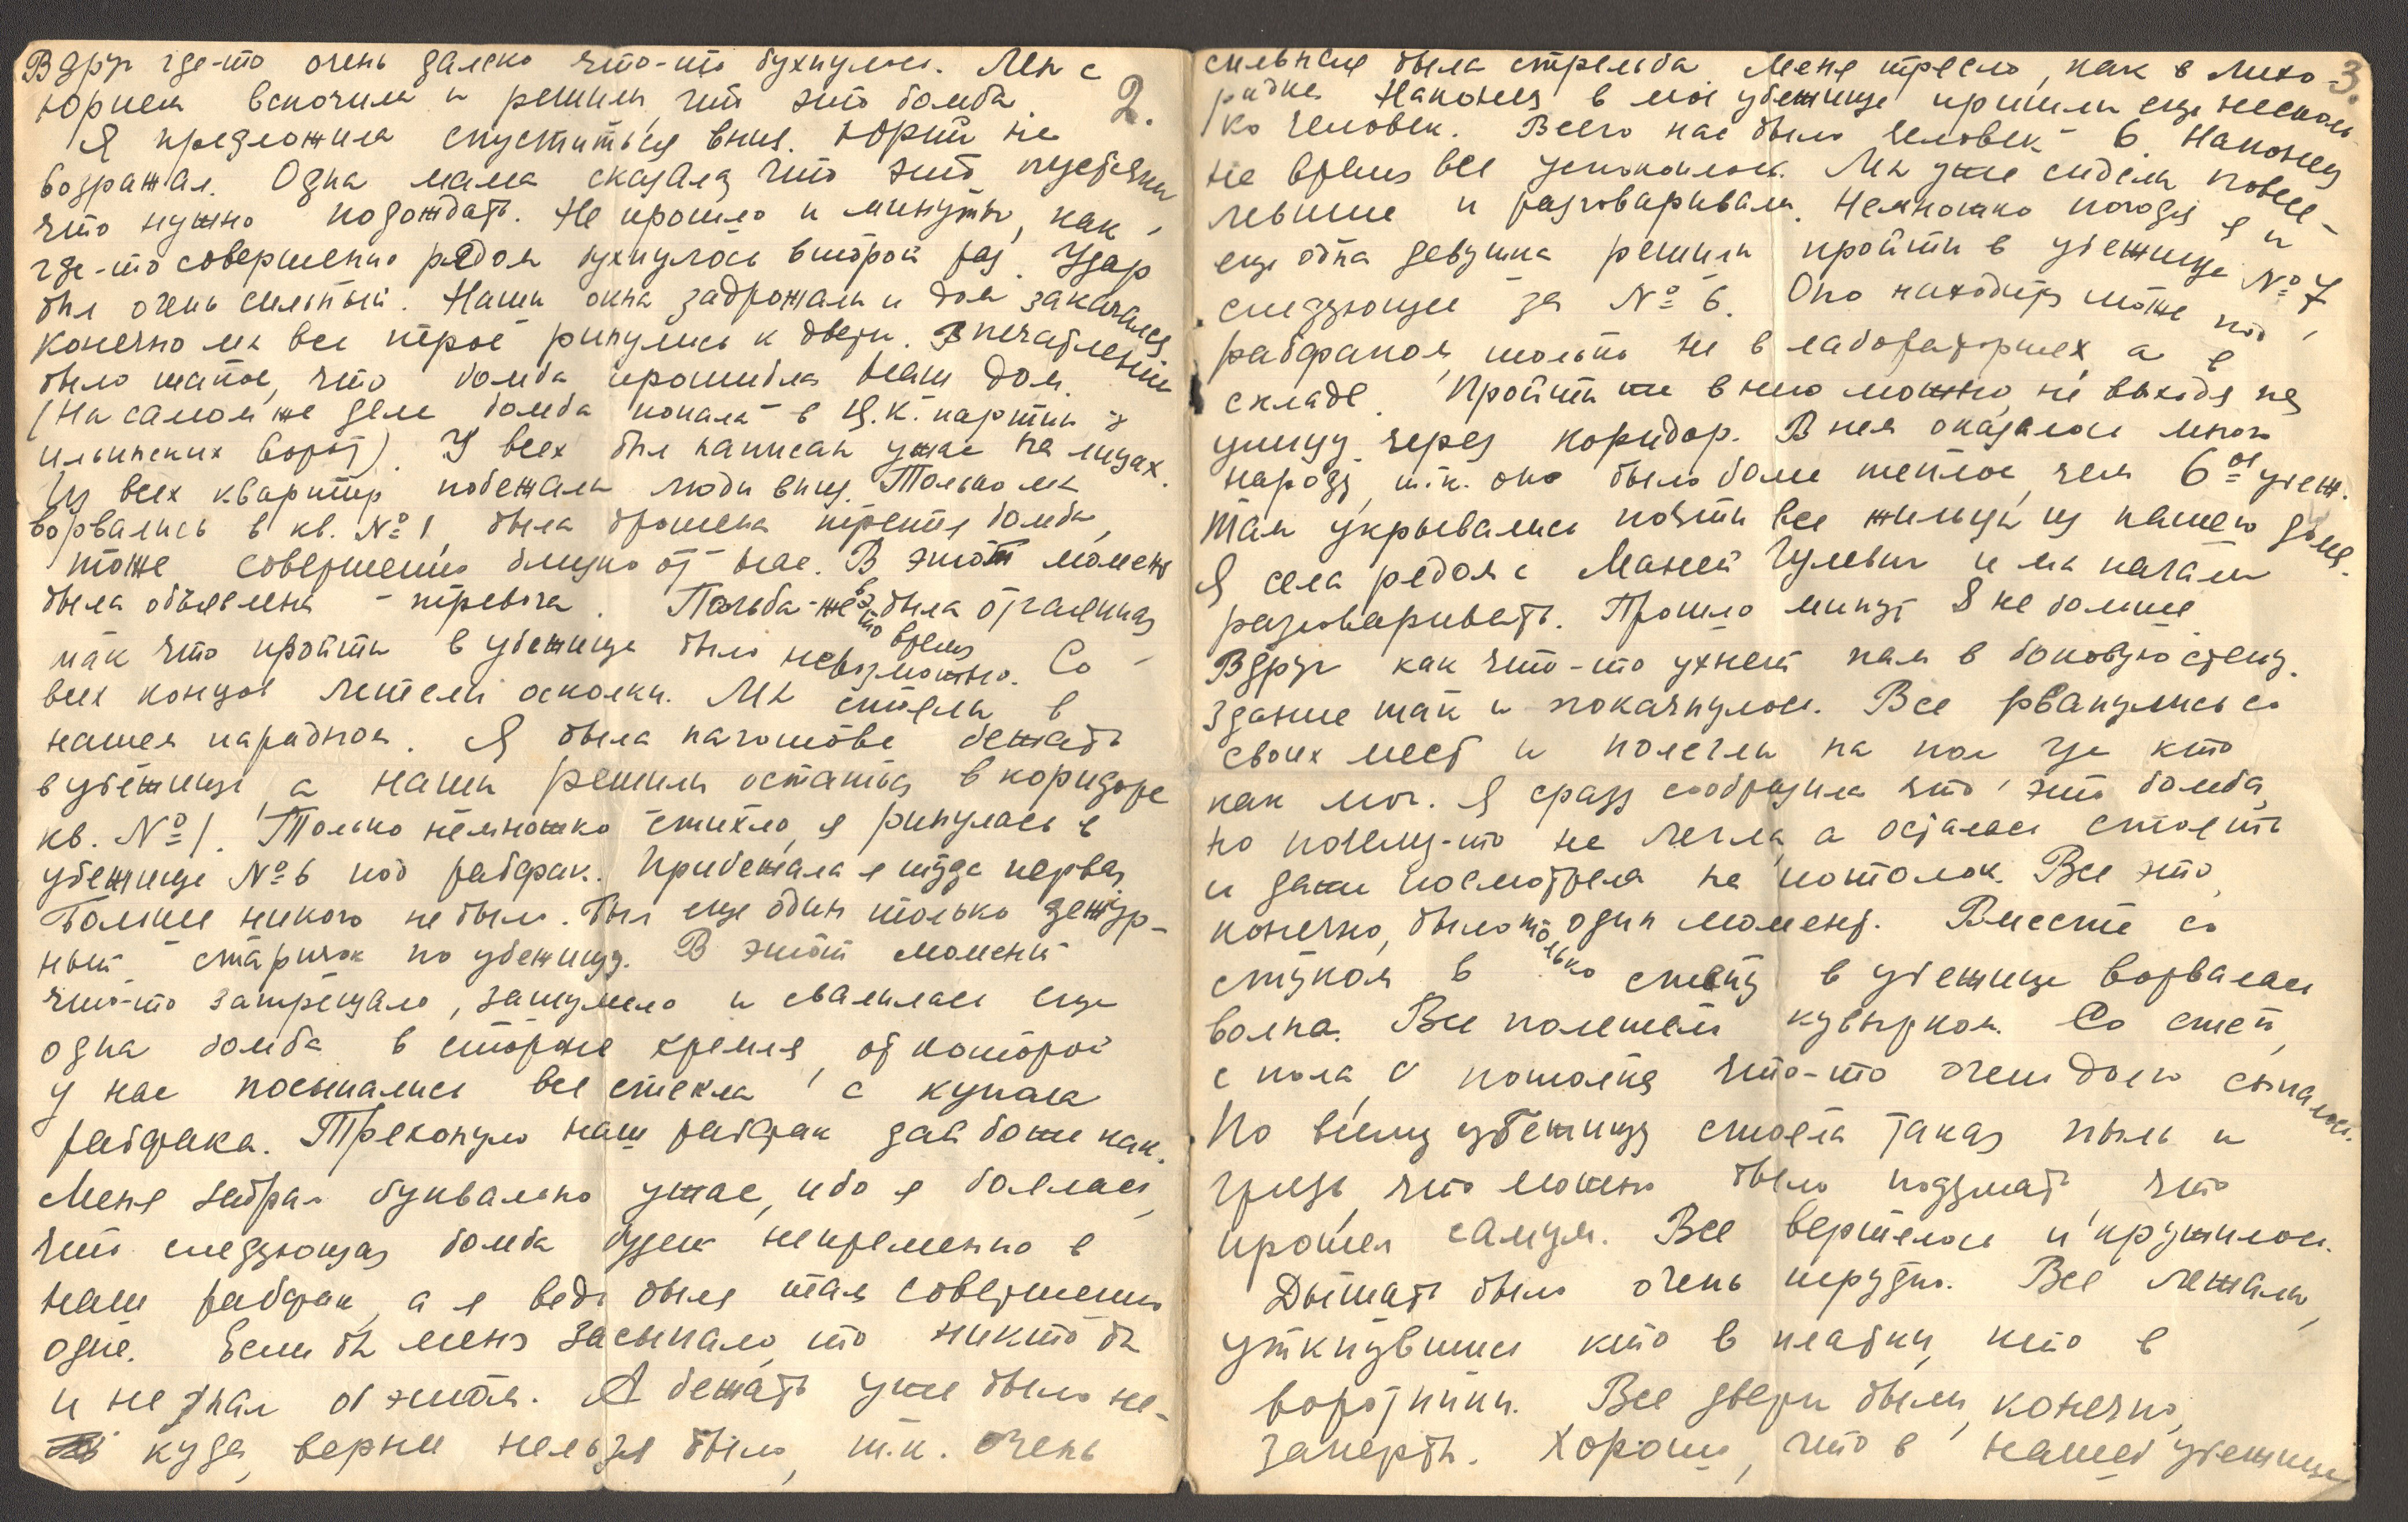 2.
Вдруг где-то очень далеко что-то бухнулось. Мы с
Юрием вскочили и решили, что это бомба.
Я предложила спуститься вниз. Юрий не
возражал. Одна мама сказала, что это пустяки
что нужно подождать. Не прошло и минуты, как
где-то совершенно рядом бухнулось второй раз. Удар
был очень сильный. Наши окна задрожали и дом закачался
Конечно мы все трое ринулись к двери. Впечатление
было такое, что бомба прошибла наш дом.
(На самом же деле бомба попала в Ц.К. партии у
ильинских ворот). У всех был написан ужас на лицах.
Из всех квартир побежали люди вниз. Только мы
ворвались в кв. № 1, была брошена третья бомба,
тоже совершенно близко от нас. В этот момент
была объявлена тревога. Пальба же в это время была отчаянная
так что пройти в убежище было невозможно. Со
всех концов летели осколки. Мы стояли в
нашем парадном. Я была наготове бежать
в убежище, а наши решили остаться в коридоре
кв. № 1. Только немножко стихло, я ринулась в
убежище № 6 под рабфак. Прибежала я туда первая.
Больше никого не было. Был еще один только дежур-
ный старичок по убежищу. В этот момент
что-то затрещало, зашумело и свалилась еще
одна бомба в стороне кремля, от которой
у нас посыпались все стекла с купола
рабфака. Трехонуло наш рабфак дай боже как.
Меня забрал буквально ужас, ибо я боялась,
что следующая бомба будет непременно в
наш рабфак, а я ведь была там совершенно
одна. Если бы меня засыпало, то никто бы
и не знал об этом. А бежать уже было не-
куда, вернее нельзя было, т.к. очень
3.
сильная была стрельба. Меня трясло, как в лихо-
радке. Наконец в мое убежище пришли еще несколь-
ко человек. Всего нас было человек 6. Наконец
на время все успокоилось. Мы уже сидели повесе-
левшие и разговаривали. Немножко погодя я и
еще одна девушка решили пройти в убежище № 7,
следующее за № 6. Оно находится тоже под
рабфаком, только не в лабораториях, а в
складе. Пройти же в него можно, не выходя на
улицу через коридор. В нем оказалось много
народу, т.к. оно было более теплое, чем 6ое убеж.
Там укрывались почти все жильцы из нашего дома.
Я села рядом с Маней Гулевич и мы начали
разговаривать. Прошло минут 8 не больше
Вдруг как что-то ухнет нам в боковую стену.
Здание так и покачнулось. Все рванулись со
своих мест и полегли на пол где кто
как мог. Я сразу сообразила что это бомба,
но почему-то не легла, а осталась стоять
и даже посмотрела на потолок. Все это,
конечно, было только один момент. Вместе со
стуком в стену в убежище ворвалась
волна. Все полетели кувырком. Со стен,
с пола, с потолка что-то очень долго сыпалось.
По всему убежищу стояла такая пыль и
грязь, что можно было подумать, что
прошел самум. Все вертелось и кружилось.
Дышать было очень трудно. Все лежали,
уткнувшись кто в платки, кто в
воротники. Все двери были, конечно,
заперты. Хорошо, что в нашем убежище